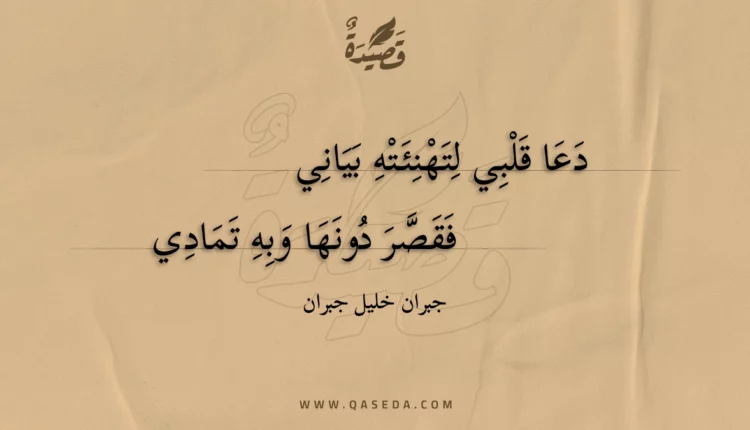 قَصِيدَةٌ
دَعَا قَلْبِي لِتَهْنِئَتْهِ بَيَانِي
فَقَصَّرَ دُونَهَا وَبِهِ تَمَادِي
جبران خليل جبران
WWW.QASEDA.COM